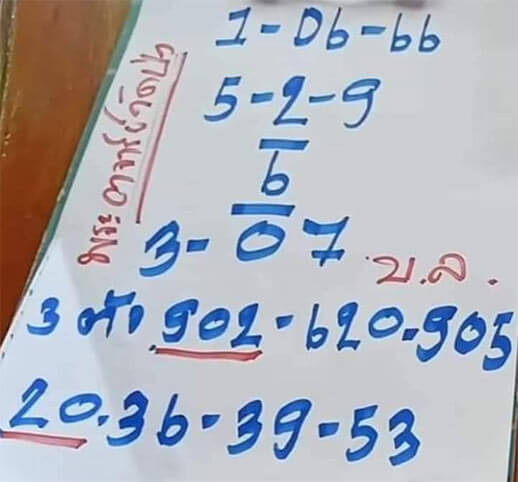 1-06-66
5-2-9
6
3-07
บ.ล.
3 ตัว 902-620-905
20-36-39-53
พระอาจารย์วัดป่า